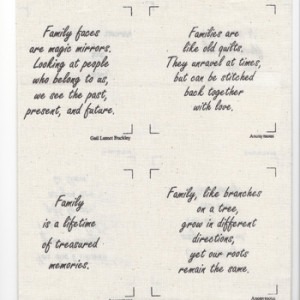 Family faces
are magic mirrors.
Looking at people
who belong to us,
we see the past,
present, and future.
Gail Lumet Buckley
Families are
like old quilts.
They unravel at times,
but can be stitched
back together
with love.
Anonymous
Family
is a lifetime
of treasured
memories.
Family, like branches
on a tree,
grow in different
directions,
yet our roots
remain the same.
Anonymous